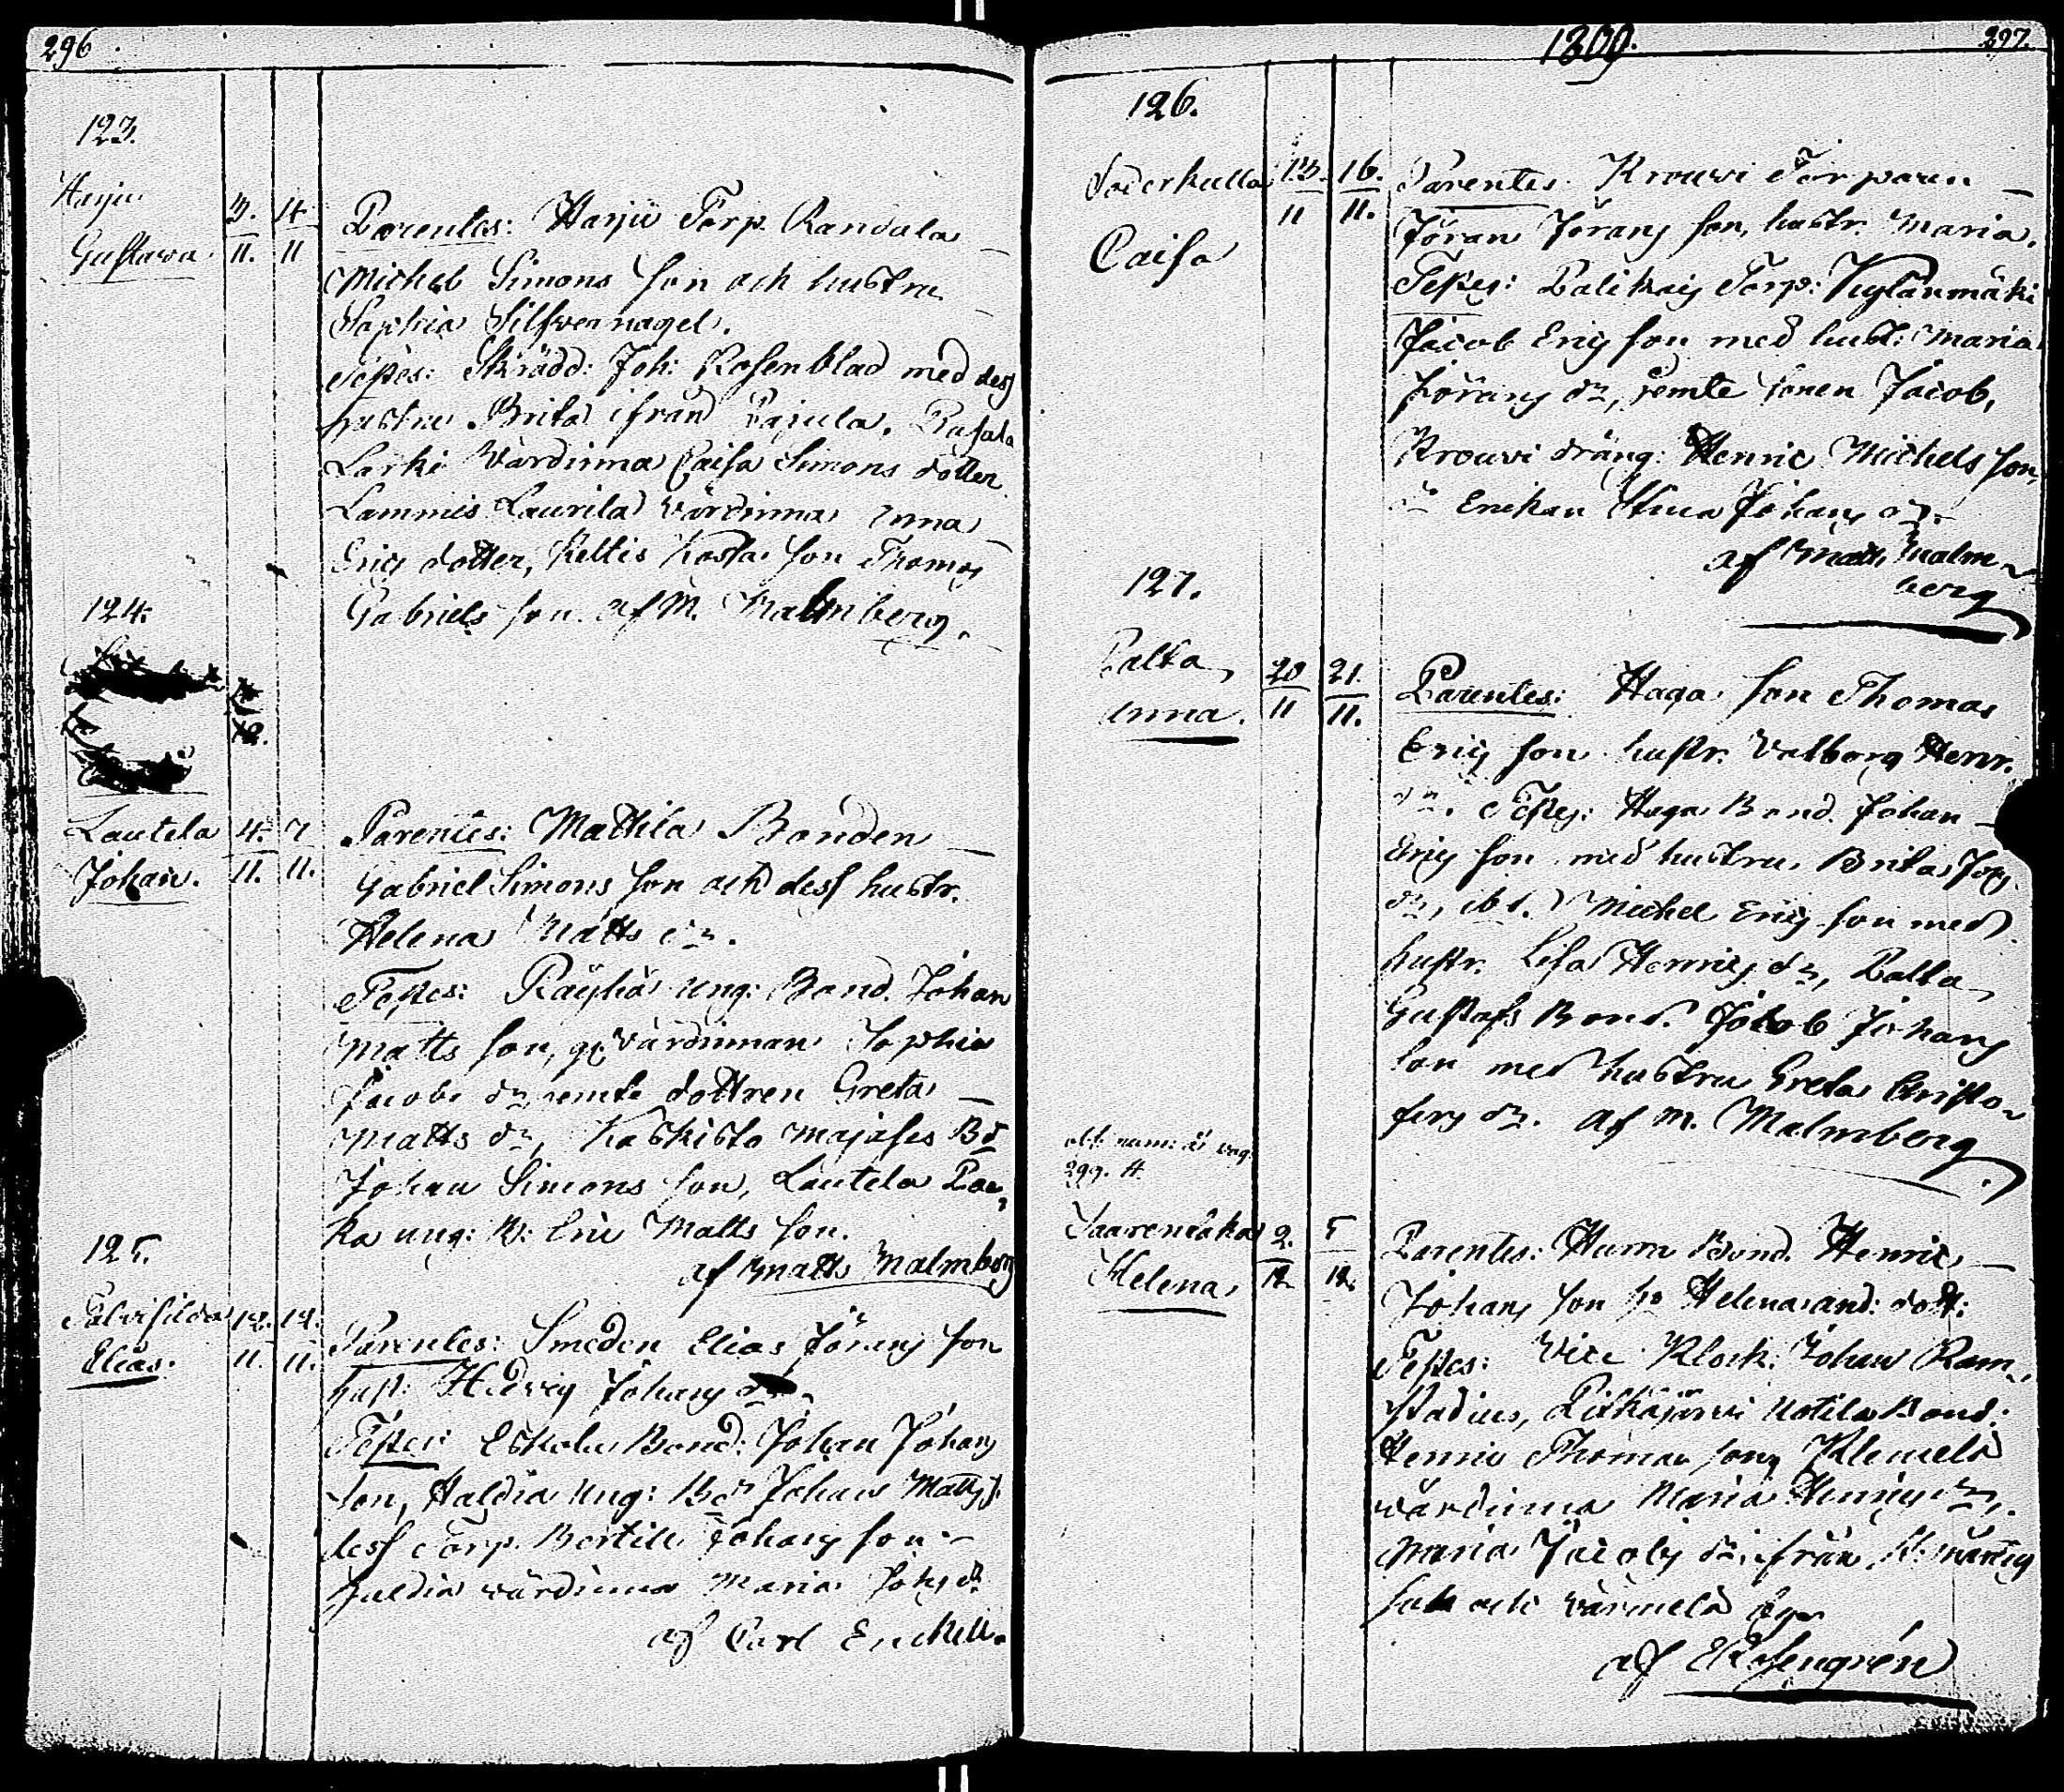 296
123.
Harju
Gustawa
3. 4.
11. 11
Parentes: Harju Torp. Randala
Michel Simons son och hustru
Sophia Silfwernagel.
Testes: Skrädd: Joh: Rosenblad med dess
hustru Brita ifrån Pajula,
Larki Värdinna Caisa Simons dotter
Lammis Laurila Värdinna Anna
Erics dotter, Keltis son Thomas
Gabriels son. af M. Malmberg.
124.
12.
Lautela
Johan.
4. 7
11. 11.
Parentes: Mattila Bonden
Gabriel Simons son och dess hustr.
Helena Matts dr.
Testes: Räyhä ung: Bond. Johan
Matts son, värdinnan Sophia
Jacobs dr, jemte dottren Greta
Matts dr, Koskisto Bd
Johan Simons son, Lautela
ka ung: B: Eric Matts son.
af Matts Malmberg
125.
Elias.
12. 12.
11. 11.
Parentes: Smeden Elias Jörans son
hust: Hedvig Johans dr.
Testes: Eskola Bond: Johan Johans
son, Haldia ung: Bdn Johan Matts s.
dess Torp. Bertill Johans son
Haldia värdinna Maria Johs d.
af Carl Enckell.
1809.
297.
126.
Söderkulla
Caisa
13. 16.
11 11.
Parentes: Krouvi Torparen
Jöran Jörans son, hustr. Maria.
Testes: Palikais Torp: Kylänmäki
Jacob Erics son med hust: Maria
Jörans dr, jemte sonen Jacob,
Krouvi dräng: Henric Michels son,
dr Enckan Stina Johans dr.
af Matts Malm-
berg
127.
Palta
Anna.
20 21.
11 11.
Parentes: Haga son Thomas
Erics son hustr. Valborg Henr.
dr. Testes: Haga Bond. Johan
Erics son med hustru Brita Johs
dr, ibd. Michel Erics son med
hustr. Lisa Henrics dr, Palta
Gustafs Bond. Jacob Johans
son med hustru Greta Christo-
fers dr. af M. Malmberg.
obf. num: är pag.
299. #
Saarenmaka
Helena,
2. 5
12. 12.
Parentes: Hurru Bond. Henric
Johans son ho Helena and: dott:
Testes: Vice Klock: Johan Ram-
stadius, Pitkäjärvi Uotila Bond:
Henric Thomas son, Klemelä
värdinna Maria Henrics dr,
Maria Jacobs dr. ifrån
och Värmelä
af E Rosengrén